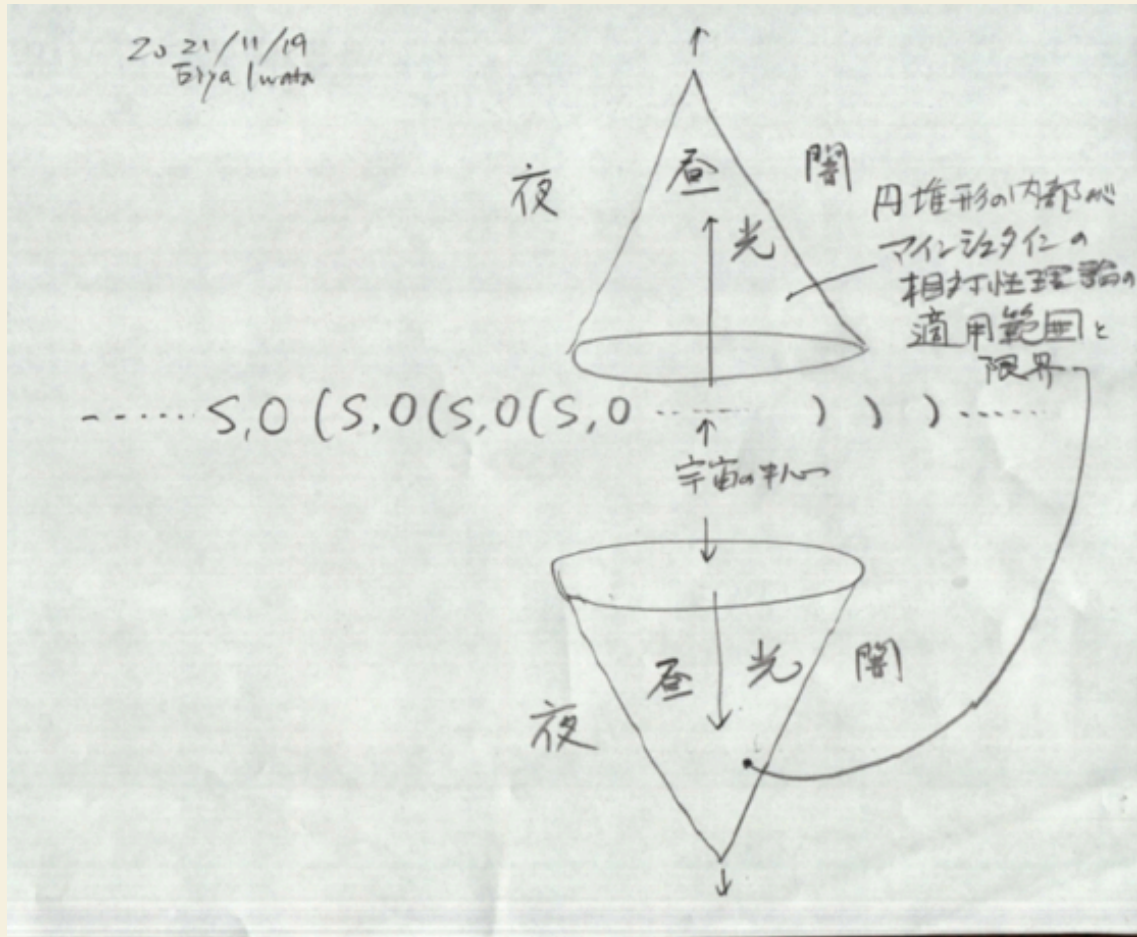 2021/11/19
Eiya Iwata
夜
昼
闇
光
円堆形の内部が
マインシュタインの
相対性理論の
適用範囲と
限界
...... S,O (S,O (S,O (S,O ...... ) ) ) ......
宇宙の中心
昼
光
闇
夜